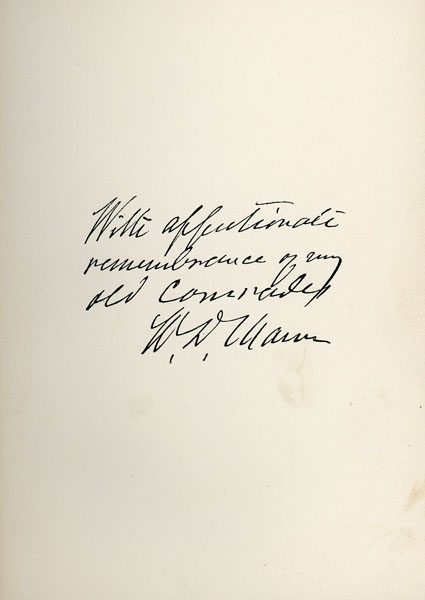 With affectionate
remembrance of my
old comrades
W. D. Mann